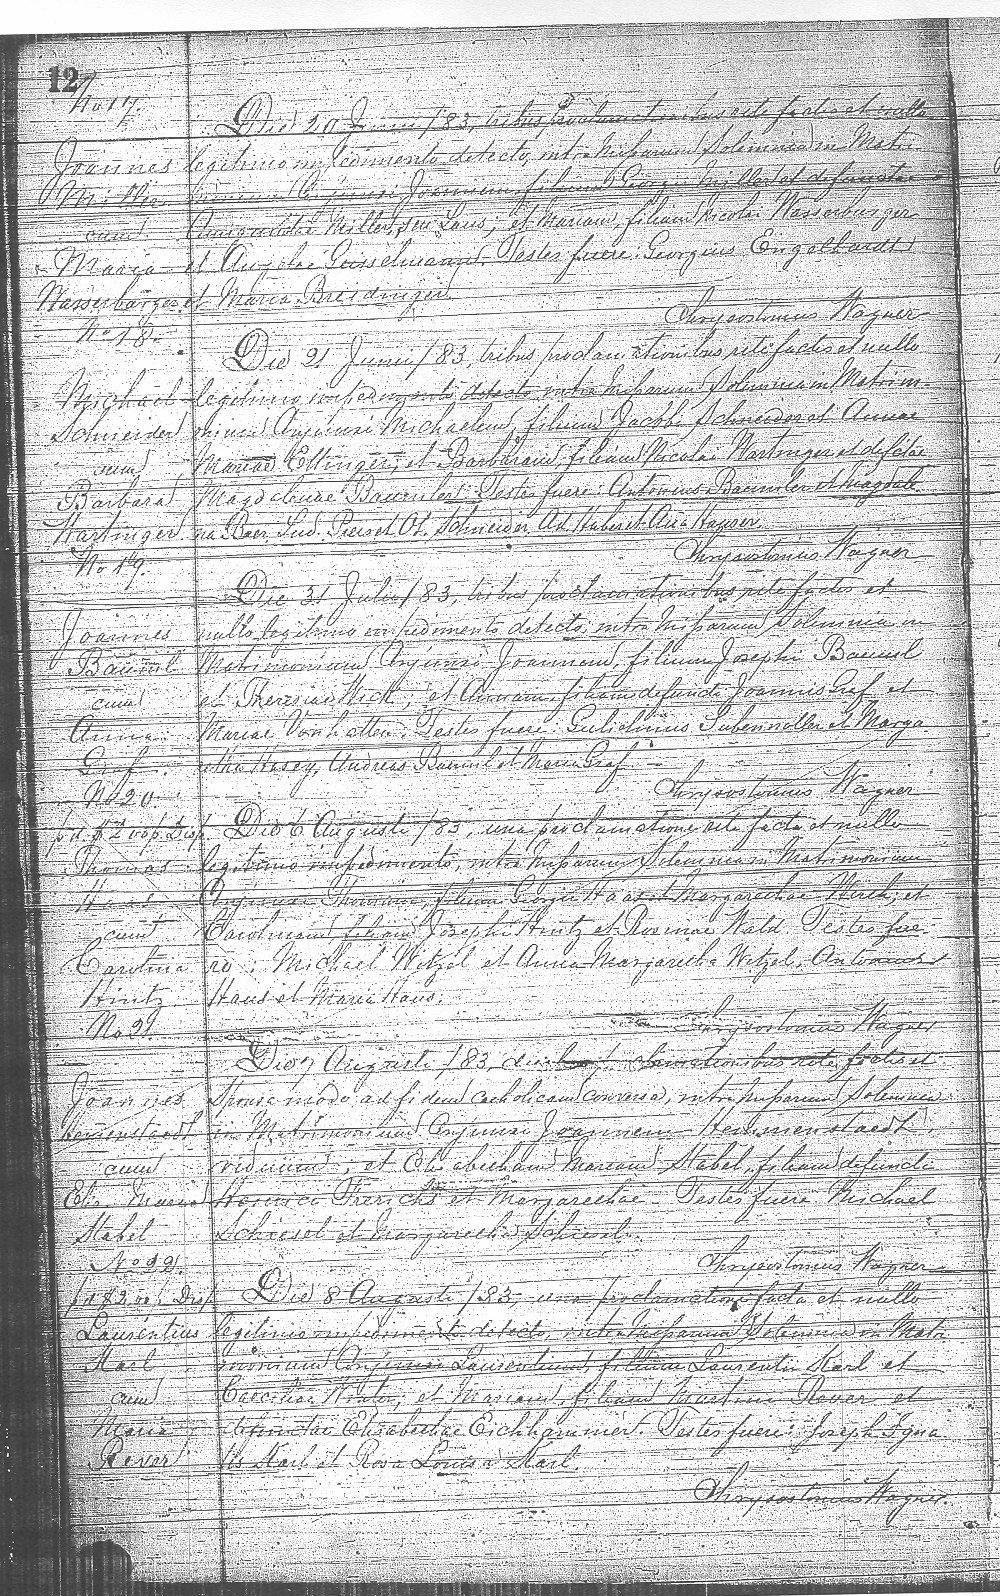 12
No 17.
Die 20 Junii /83, tribus proclamationibus rite factis et nullo
Joannes legitimo impedimento detecto, intra missarum solemnia in Matri-
Miller monium conjunxi Joannem, filium Georgii Miller et defunctae
cum Miller, et Mariam, filiam Nicolai Wasserburger
Maria et Angelae Gusselmann. Testes fuere. Georgius Engelhardt
Wasserburger et Maria Breidinger
Chrysostomus Wagner
No 18.
Die 21 Junii /83, tribus proclamationibus rite factis et nullo
Michael legitimo impedimento detecto intra missarum solemnia in Matrim-
Schneider onium conjunxi Michaelem, filium Jacobi Schneider et Annae
cum Mariae Ettinger, et Barbaram, filiam Nicolai Hartinger et defctae
Barbara Magdalenae Baeumler. Testes fuere: Antonius Baeumler et Magdale-
Hartinger na Baer, Lud. Schneider, Ad. Huber et
Chrysostomus Wagner
No 19.
Die 31 Julii /83, tribus proclamationibus rite factis et
Joannes nullo legitimo impedimento detecto, intra missarum solemnia in
Baeuml Matrimonium conjunxi Joannem, filium Josephi Baeuml
cum et Theresiae Hick, et Annam, filiam defuncti Joannis Graf et
Anna Mariae Vonhatten. Testes fuere: Gulielmus et Marga
Graf. retha Hasey, Andreas Baeuml et Maria Graf.
Chrysostomus Wagner
No 20
pd. $2 00 p. Disp. Die 6 Augusti /83, una proclamatione rite facta et nullo
Thomas legitimo impedimento, intra missarum solemnia in Matrimonium
Haas conjunxi Thomam, filium Georgii Haas et Margarethae Herl, et
cum Carolinam filiam Josephi Hintz et Rosinae Wald. Testes fue-
Carolina re: Michael Witzel et Anna Margaretha Witzel, Antonius
Hintz Haus et Maria Haus.
Chrysostomus Wagner
No 21.
Die 7 Augusti /83, duabus proclamationibus rite factis et
Joannes sponsa modo ad fidem catholicam conversa, intra missarum solemnia
Hermenstaedt in Matrimonium conjunxi Joannem Hermenstaedt,
cum viduum, et Elisabetham Mariam Stabel, filiam defuncti
Elis. Maria Henrici Frerichs et Margarethae — Testes fuere Michael
Stabel Schiesel et Margaretha Schiesel.
Chrysostomus Wagner
No 22.
pd $2,00 p. Disp Die 8 Augusti /83, una proclamatione facta et nullo
Laurentius legitimo impedimento detecto, intra missarum solemnia in Matri
Karl monium conjunxi Laurentium, filium Laurentii Karl et
cum Caeciliae Winter, et Mariam, filiam Rever et
Maria defunctae Elisabethae Eichhammer. Testes fuere: Joseph Igna
Rever tis Karl et Rosa Louisa Karl.
Chrysostomus Wagner.